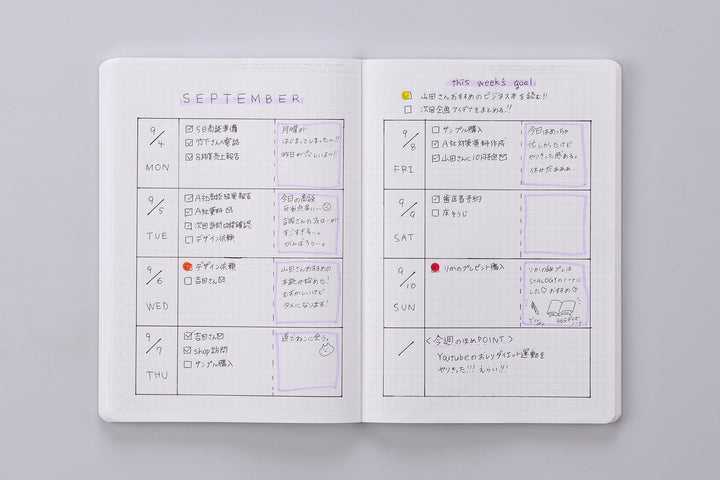 SEPTEMBER
9/4
MON
5日商談準備
竹下さんへ電話
8月度売上報告
月曜が
はじまってしまったー!!
昨日が恋しいよー!!
9/5
TUE
A社商談結果報告
A社資料
次回訪問日程確認
デザイン依頼
今日の商談
吉岡さんのフォローが
すごすぎるー。
がんばろうー。
9/6
WED
デザイン依頼
吉田さん
山田さんおすすめの
本読み始めた!
むずかしいけど
タメになります!
9/7
THU
吉田さん
shop訪問
サンプル購入
道でねこに会う。
this week's goal
山田さんおすすめのビジネス本を読む!!
次回企画アイデアをまとめる!!
9/8
FRI
サンプル購入
A社対策資料作成
山田さんに10月相談
今日はめっちゃ
忙しかったけど
やりきった感ある。
休みだぁぁぁ
9/9
SAT
歯医者予約
床そうじ
9/10
SUN
りかのプレゼント購入
りかの誕プレは
STALOGYのノートに
した おすすめ
/
<今週のほめPOINT>
Youtubeのおしりダイエット運動を
やりきった!!! えらい!!!